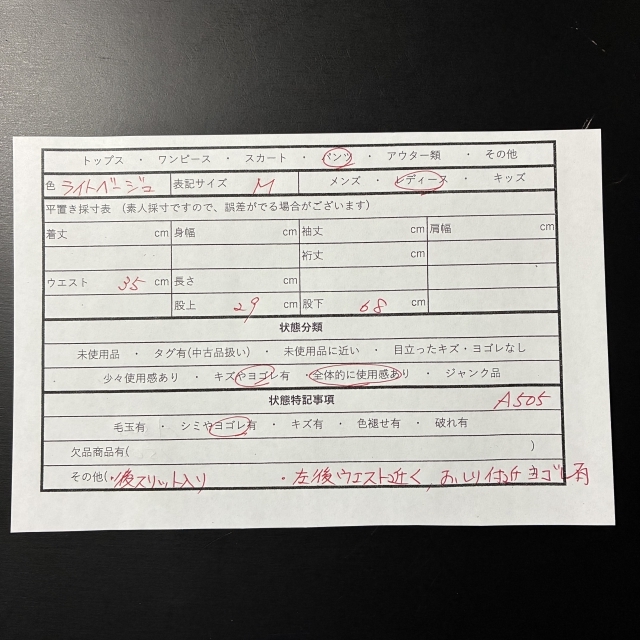 トップス ・ ワンピース ・ スカート ・ パンツ ・ アウター類 ・ その他
色 ライトベージュ 表記サイズ M メンズ ・ レディース ・ キッズ
平置き採寸表 (素人採寸ですので、誤差がでる場合がございます)
着丈 cm 身幅 cm 袖丈 cm 肩幅 cm
裄丈 cm
ウエスト 35 cm 長さ cm
股上 29 cm 股下 68 cm
状態分類
未使用品 ・ タグ有(中古品扱い) ・ 未使用品に近い ・ 目立ったキズ・ヨゴレなし
少々使用感あり ・ キズやヨゴレ有 ・ 全体的に使用感あり ・ ジャンク品
状態特記事項 A505
毛玉有 ・ シミやヨゴレ有 ・ キズ有 ・ 色褪せ有 ・ 破れ有
欠品商品有( )
その他(・後スリット入り ・左後ウエスト近く、おしり付近ヨゴレ有